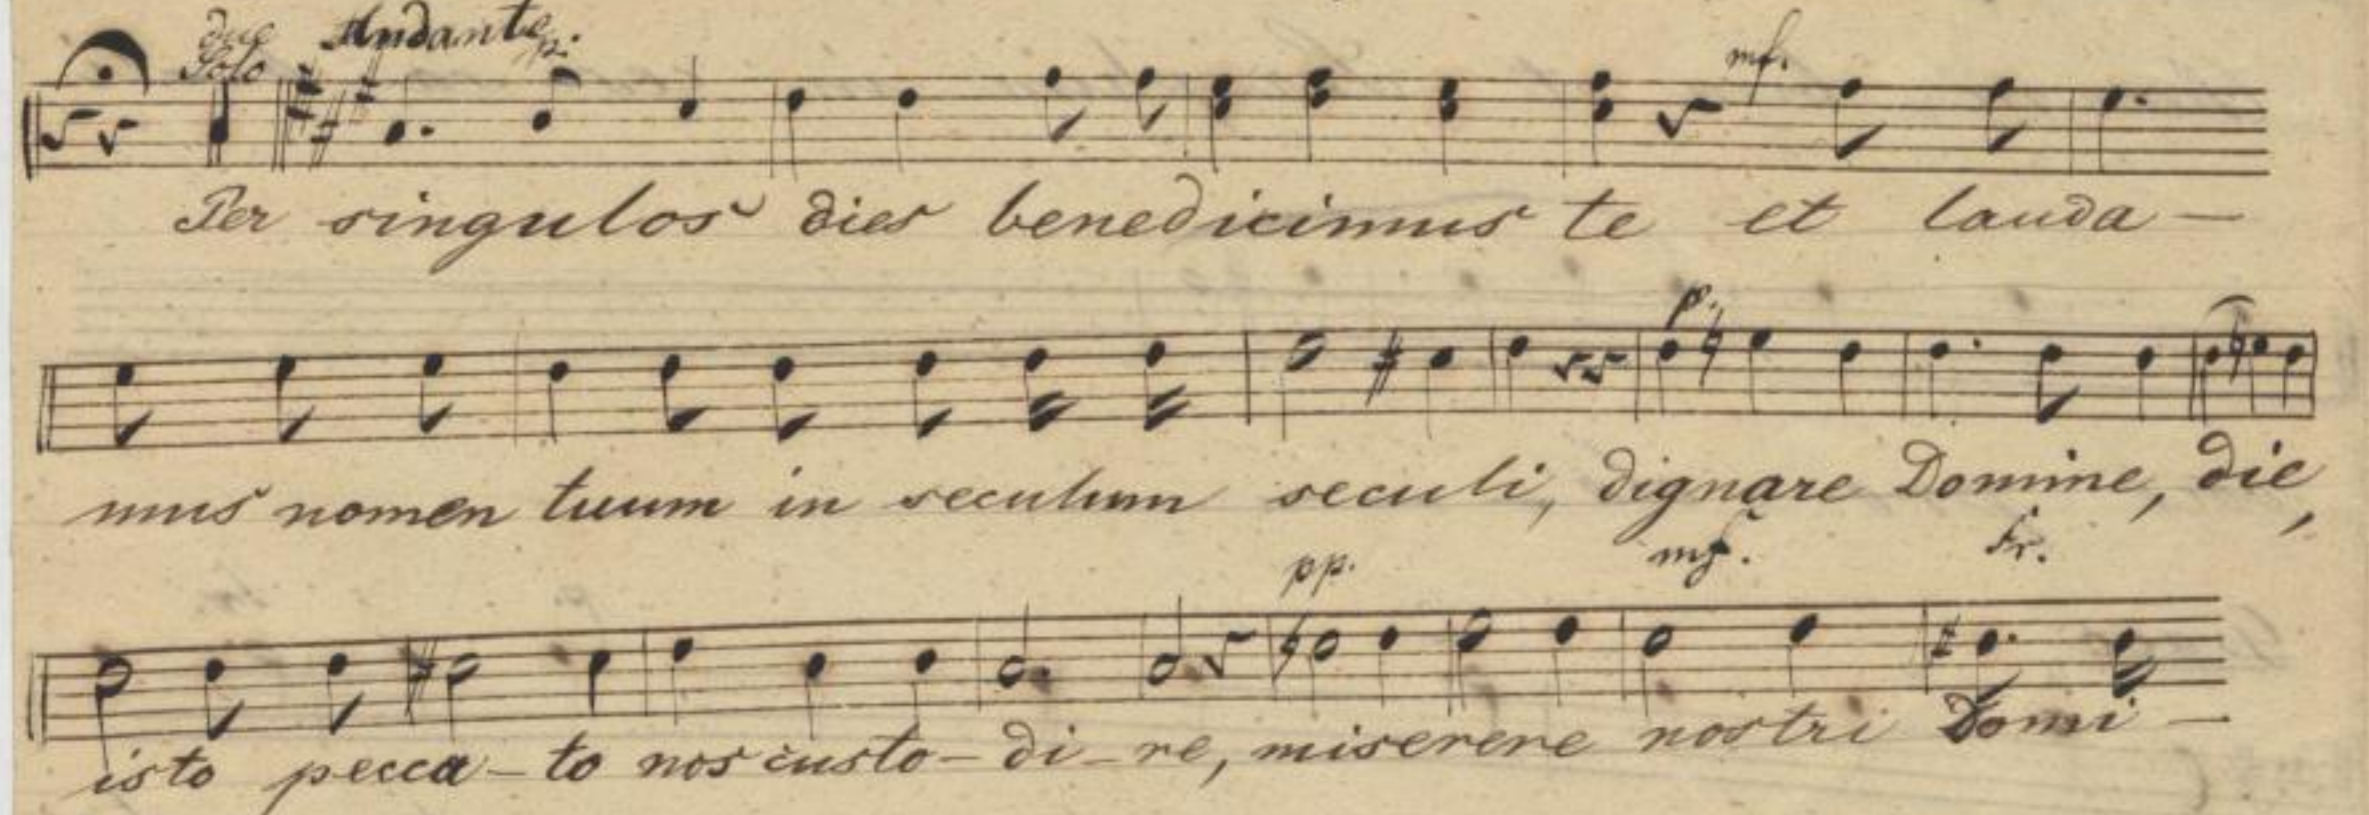 due
Solo Andante p. mf.
Per singulos dies benedicimus te et lauda —
p.
mus nomen tuum in seculum seculi, dignare Domine, die,
pp. mf. fr.
isto pecca - to nos custo - di - re, miserere nostri Domi —